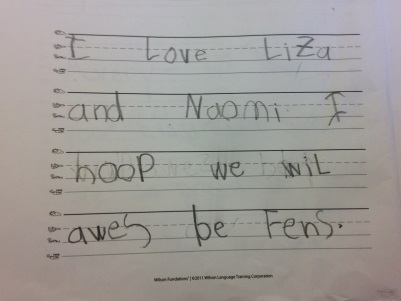 I Love LiZa
and Naomi I
hoop we wil
awes be Fens.
Wilson Fundations® | ©2011 Wilson Language Training Corporation